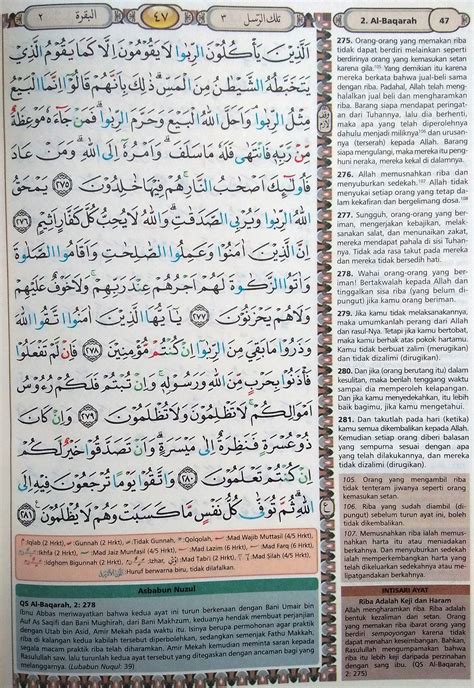 البقرة ٢
٤٧
تلك الرسل ٣
2. Al-Baqarah
47
الَّذِيْنَ يَأْكُلُوْنَ الرِّبٰوا لَا يَقُوْمُوْنَ اِلَّا كَمَا يَقُوْمُ الَّذِيْ
يَتَخَبَّطُهُ الشَّيْطٰنُ مِنَ الْمَسِّۗ ذٰلِكَ بِاَنَّهُمْ قَالُوْٓا اِنَّمَا الْبَيْعُ
مِثْلُ الرِّبٰواۘ وَاَحَلَّ اللّٰهُ الْبَيْعَ وَحَرَّمَ الرِّبٰواۗ فَمَنْ جَاۤءَهٗ مَوْعِظَةٌ
مِّنْ رَّبِّهٖ فَانْتَهٰى فَلَهٗ مَا سَلَفَۗ وَاَمْرُهٗٓ اِلَى اللّٰهِۗ وَمَنْ عَادَ
فَاُولٰۤىِٕكَ اَصْحٰبُ النَّارِۚ هُمْ فِيْهَا خٰلِدُوْنَ ﴿٢٧٥﴾ يَمْحَقُ
اللّٰهُ الرِّبٰوا وَيُرْبِى الصَّدَقٰتِۗ وَاللّٰهُ لَا يُحِبُّ كُلَّ كَفَّارٍ اَثِيْمٍ ﴿٢٧٦﴾
اِنَّ الَّذِيْنَ اٰمَنُوْا وَعَمِلُوا الصّٰلِحٰتِ وَاَقَامُوا الصَّلٰوةَ
وَاٰتَوُا الزَّكٰوةَ لَهُمْ اَجْرُهُمْ عِنْدَ رَبِّهِمْۚ وَلَا خَوْفٌ عَلَيْهِمْ
وَلَا هُمْ يَحْزَنُوْنَ ﴿٢٧٧﴾ يٰٓاَيُّهَا الَّذِيْنَ اٰمَنُوا اتَّقُوا اللّٰهَ
وَذَرُوْا مَا بَقِيَ مِنَ الرِّبٰوٓا اِنْ كُنْتُمْ مُّؤْمِنِيْنَ ﴿٢٧٨﴾ فَاِنْ لَّمْ تَفْعَلُوْا
فَأْذَنُوْا بِحَرْبٍ مِّنَ اللّٰهِ وَرَسُوْلِهٖۚ وَاِنْ تُبْتُمْ فَلَكُمْ رُءُوْسُ
اَمْوَالِكُمْۚ لَا تَظْلِمُوْنَ وَلَا تُظْلَمُوْنَ ﴿٢٧٩﴾ وَاِنْ كَانَ
ذُوْ عُسْرَةٍ فَنَظِرَةٌ اِلٰى مَيْسَرَةٍۗ وَاَنْ تَصَدَّقُوْا خَيْرٌ لَّكُمْ
اِنْ كُنْتُمْ تَعْلَمُوْنَ ﴿٢٨٠﴾ وَاتَّقُوْا يَوْمًا تُرْجَعُوْنَ فِيْهِ اِلَى
اللّٰهِۗ ثُمَّ تُوَفّٰى كُلُّ نَفْسٍ مَّا كَسَبَتْ وَهُمْ لَا يُظْلَمُوْنَ ﴿٢٨١﴾
275. Orang-orang yang memakan riba
tidak dapat berdiri melainkan seperti
berdirinya orang yang kemasukan setan
karena gila.¹⁰⁵ Yang demikian itu karena
mereka berkata bahwa jual-beli sama
dengan riba. Padahal, Allah telah meng-
halalkan jual beli dan mengharamkan
riba. Barang siapa mendapat peringat-
an dari Tuhannya, lalu dia berhenti,
maka apa yang telah diperolehnya
dahulu menjadi miliknya¹⁰⁶ dan urusan-
nya (terserah) kepada Allah. Barang
siapa mengulangi, maka mereka itu peng-
huni neraka, mereka kekal di dalamnya.
276. Allah memusnahkan riba dan
menyuburkan sedekah.¹⁰⁷ Allah tidak
menyukai setiap orang yang tetap da-
lam kekafiran dan bergelimang dosa.¹⁰⁸
277. Sungguh, orang-orang yang ber-
iman, mengerjakan kebajikan, melak-
sanakan salat, dan menunaikan zakat,
mereka mendapat pahala di sisi Tuhan-
nya. Tidak ada rasa takut pada mereka
dan mereka tidak bersedih hati.
278. Wahai orang-orang yang ber-
iman! Bertakwalah kepada Allah dan
tinggalkan sisa riba (yang belum di-
pungut) jika kamu orang beriman.
279. Jika kamu tidak melaksanakannya,
maka umumkanlah perang dari Allah
dan rasul-Nya. Tetapi jika kamu bertobat,
maka kamu berhak atas pokok hartamu.
Kamu tidak berbuat zalim (merugikan)
dan tidak dizalimi (dirugikan).
280. Dan jika (orang berutang itu) dalam
kesulitan, maka berilah tenggang waktu
sampai dia memperoleh kelapangan.
Dan jika kamu menyedekahkan, itu lebih
baik bagimu, jika kamu mengetahui.
281. Dan takutlah pada hari (ketika)
kamu semua dikembalikan kepada Allah.
Kemudian setiap orang diberi balasan
yang sempurna sesuai dengan apa
yang telah dilakukannya, dan mereka
tidak dizalimi (dirugikan).
105. Orang yang mengambil riba
tidak tenteram jiwanya seperti orang
kemasukan setan.
106. Riba yang sudah diambil (di-
pungut) sebelum turun ayat ini, boleh
tidak dikembalikan.
107. Memusnahkan riba ialah memus-
nahkan harta itu atau meniadakan
berkahnya. Dan menyuburkan sedekah
ialah memperkembangkan harta yang
telah dikeluarkan sedekahnya atau me-
lipatgandakan berkahnya.
:Iqlab (2 Hrkt), :Gunnah (2 Hrkt), :Tidak Gunnah, :Qolqolah, :Mad Wajib Muttasil (4/5 Hrkt),
:Ikhfa (2 Hrkt), :Mad Jaiz Munfasil (4/5 Hrkt), :Mad Lazim (6 Hrkt), :Mad Farq (6 Hrkt),
:Idghom Bigunnah (2 Hrkt), :Izhar, :Mad Tabi'i (2 Hrkt), :Mad Silah (4/5 Hrkt),
:Huruf berwarna biru, tidak dilafalkan.
Asbabun Nuzul
QS Al-Baqarah, 2: 278
Ibnu Abbas meriwayatkan bahwa kedua ayat ini turun berkenaan dengan Bani Umair bin
Auf As Saqifi dan Bani Mughirah, dari Bani Makhzum, keduanya hendak membuat perjanjian
dengan Utab bin Asid, Amir Mekah pada waktu itu. Isinya berupa permohonan agar praktik
riba di kalangan kedua kabilah tersebut diperbolehkan, sedangkan semenjak Fathu Makkah,
segala macam praktik riba telah diharamkan. Amir Mekah kemudian meminta saran kepada
Rasulullah saw. lalu turunlah kedua ayat tersebut yang ditegaskan dengan ancaman bagi yang
melanggarnya. (Lubabun Nuqul: 39)
INTISARI AYAT
Riba Adalah Keji dan Haram
Allah mengharamkan riba. Riba adalah
bentuk kezaliman dari setan. Orang
yang memakan riba ibarat orang yang
berdiri sempoyongan karena tidak
dapat menahan keseimbangan. Bahkan,
Rasulullah mengumpamakan bahwa
riba itu lebih keji daripada perzinahan
dengan sang ibu. (QS Al-Baqarah,
2: 275)